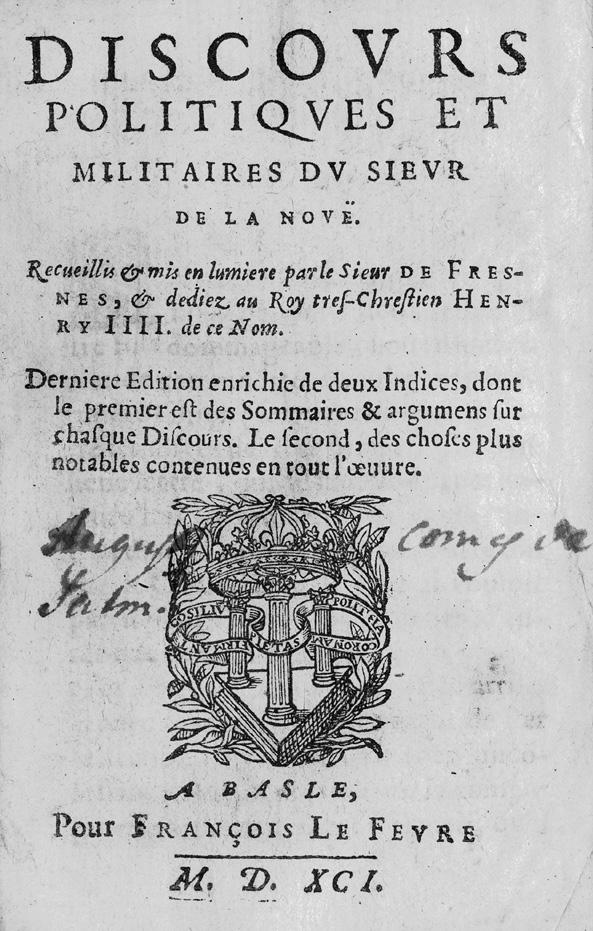 DISCOVRS
POLITIQVES ET
MILITAIRES DV SIEVR
DE LA NOVË.
Recueillis & mis en lumiere par le Sieur DE FRES-
NES, & dediez au Roy treſ-Chreſtien HEN-
RY IIII. de ce Nom.
Derniere Edition enrichie de deux Indices, dont
le premier eſt des Sommaires & argumens ſur
chaſque Diſcours. Le ſecond, des choſes plus
notables contenues en tout l'œuure.
COSILIV POLITEIA
FIRMANT PIETAS CORONAM
A BASLE,
Pour FRANÇOIS LE FEVRE
M. D. XCI.